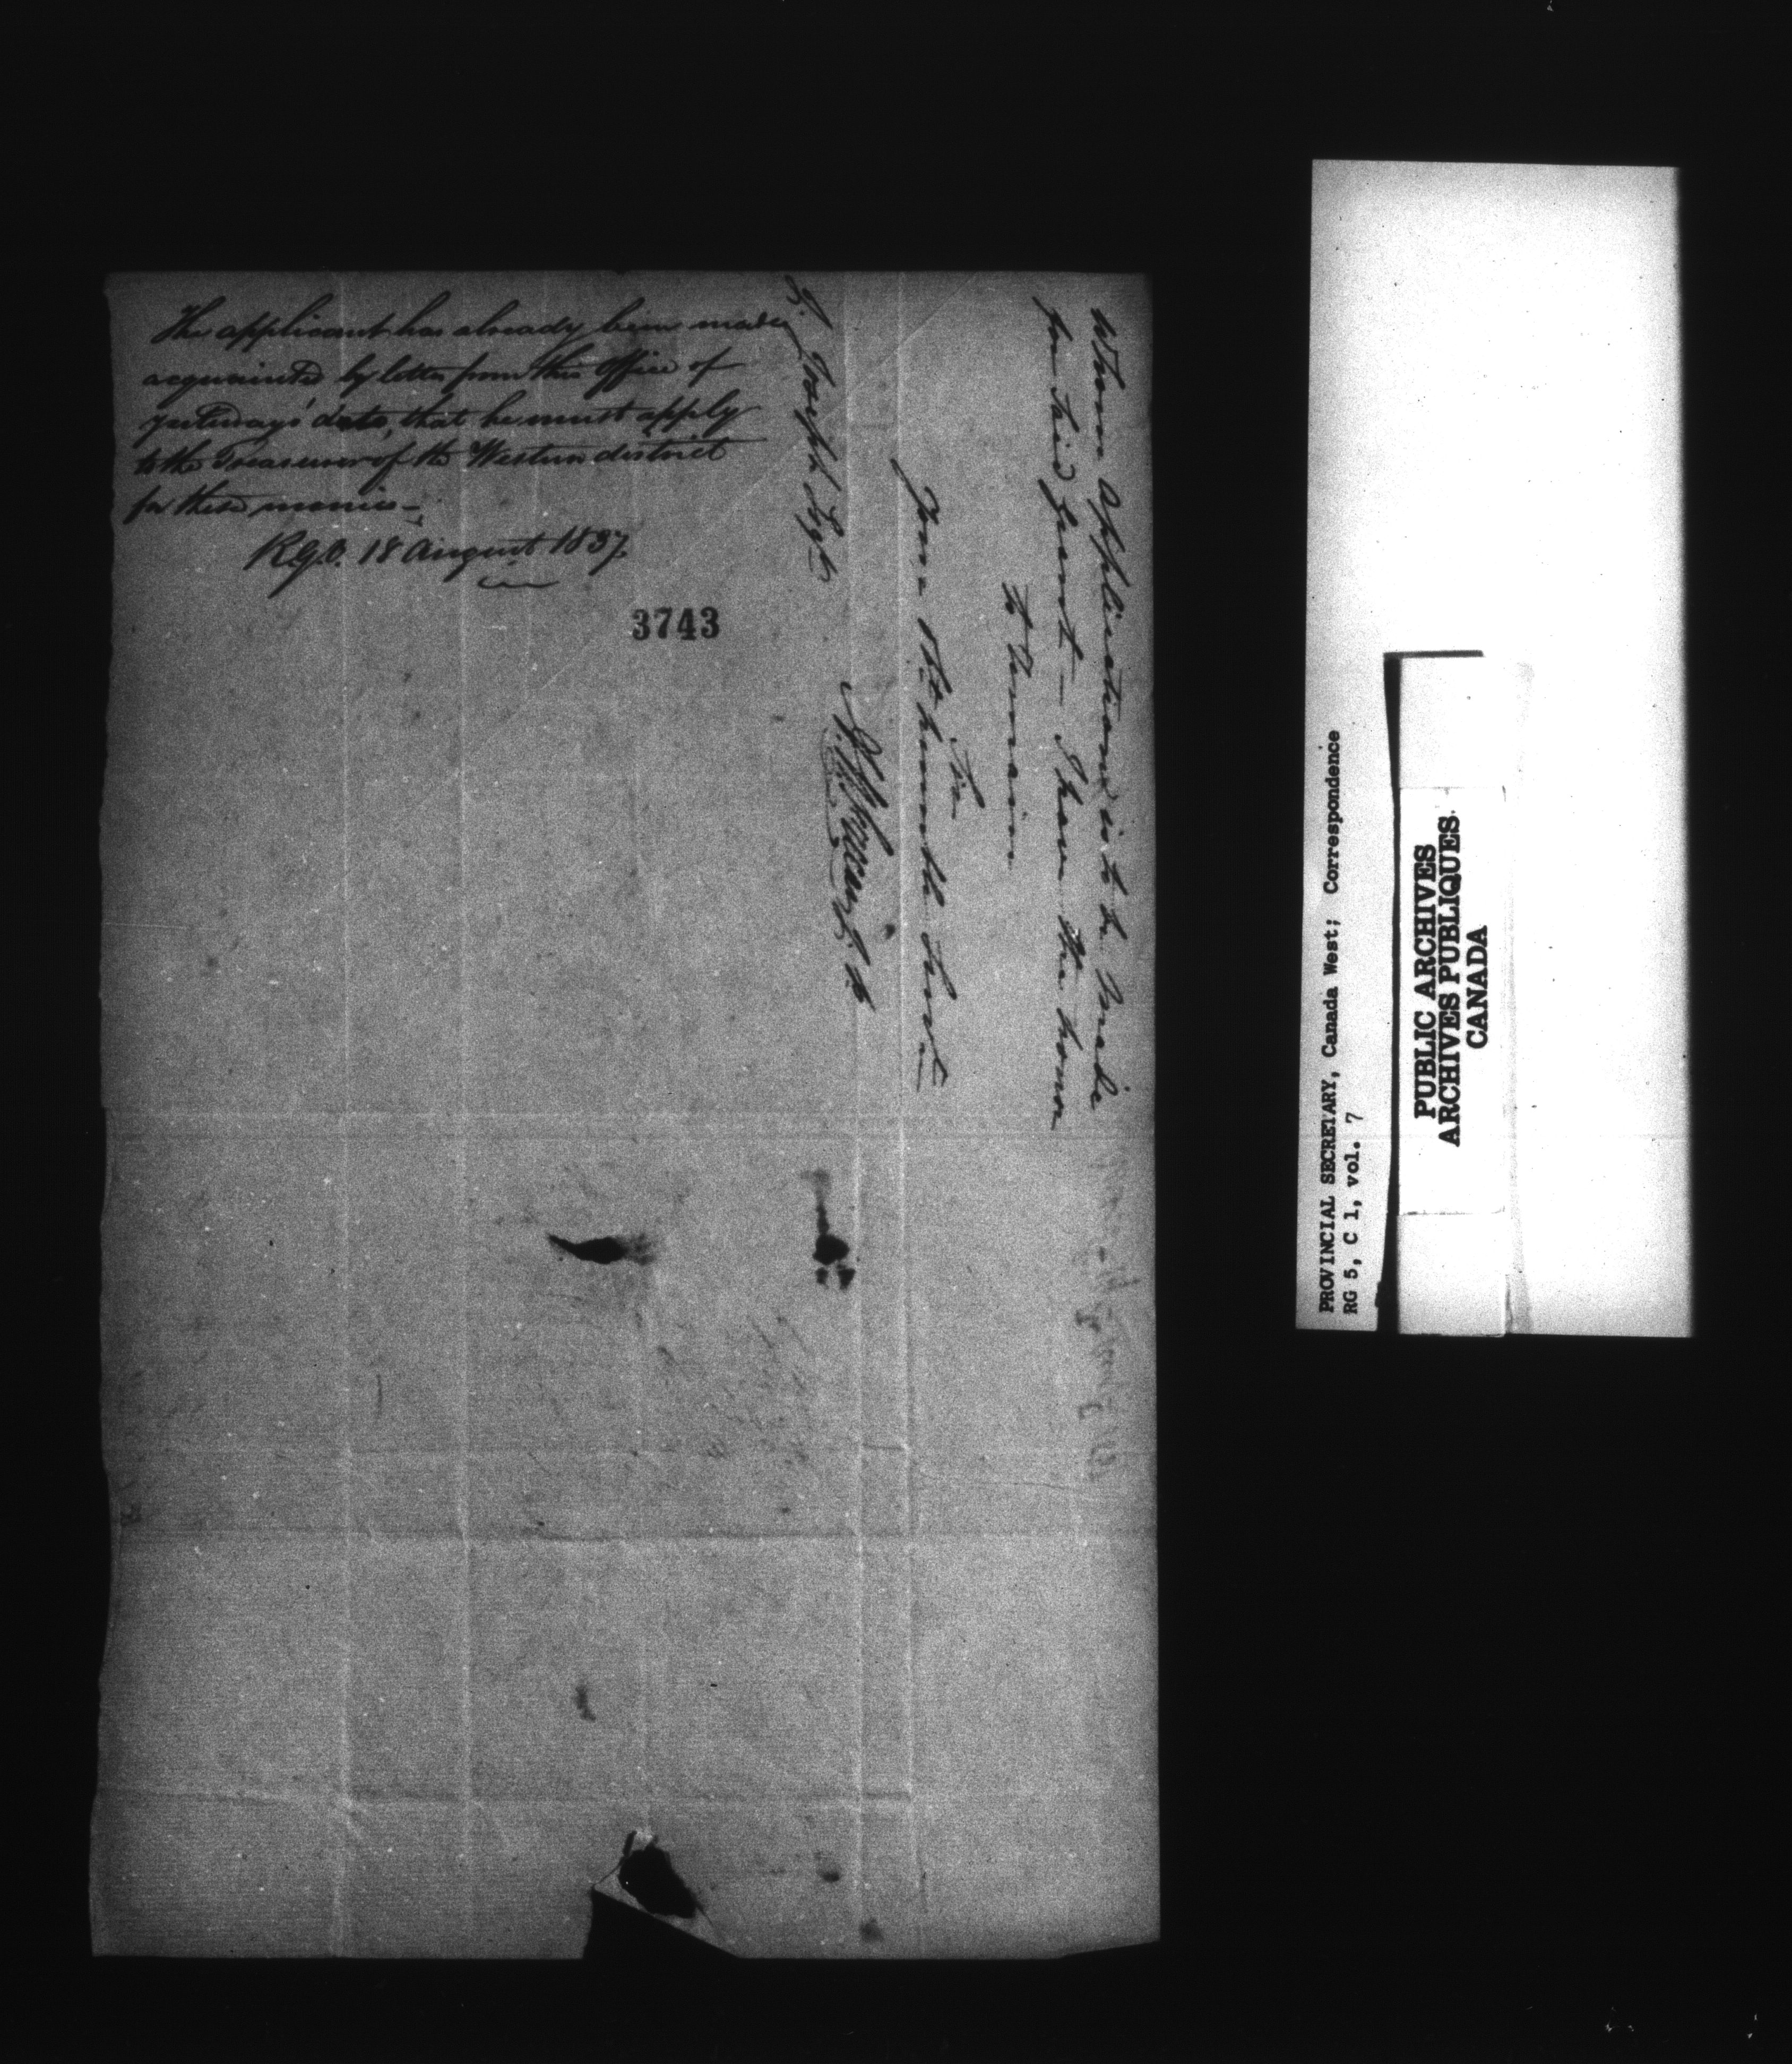 The applicant has already been made
acquainted by letter from this Office of
yesterdays' date, that he must apply
to the Treasurer of the Western district
for these monies—
R.G.O. 18 August 1837
3743
Whom application is to be Made
for Said Grant — I have the honor
to remain
Sir
Your Obt humble Servt
J. Joseph Esqr
PROVINCIAL SECRETARY, Canada West; Correspondence
RG 5, C 1, vol. 7
PUBLIC ARCHIVES
ARCHIVES PUBLIQUES
CANADA